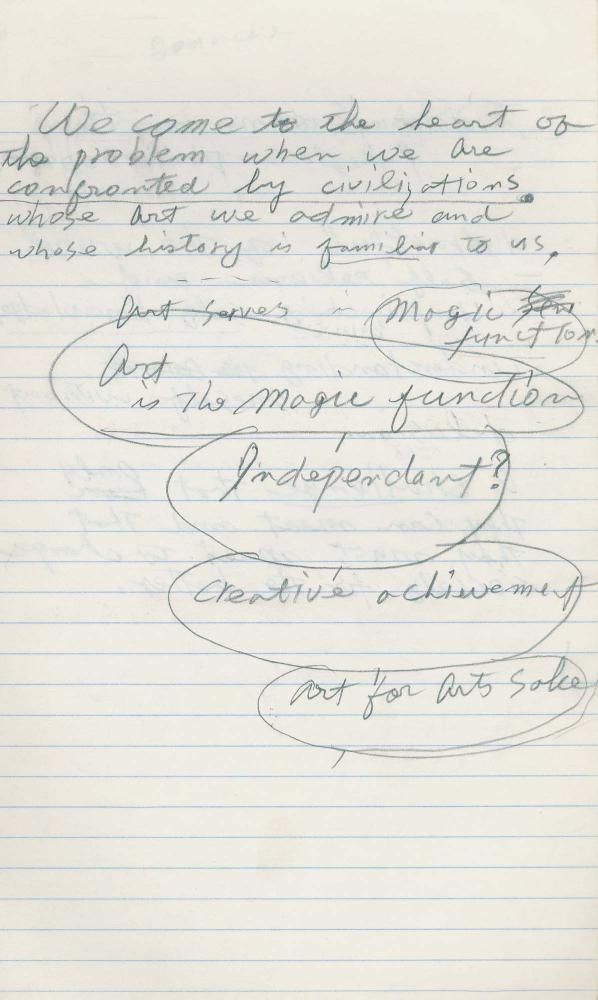 We come to the heart of
the problem when we are
confronted by civilizations.
whose art we admire and
whose history is familiar to us.
Art serves in Magic
function
Art
is The Magic function
Independant?
Creative achievement
art for arts sake